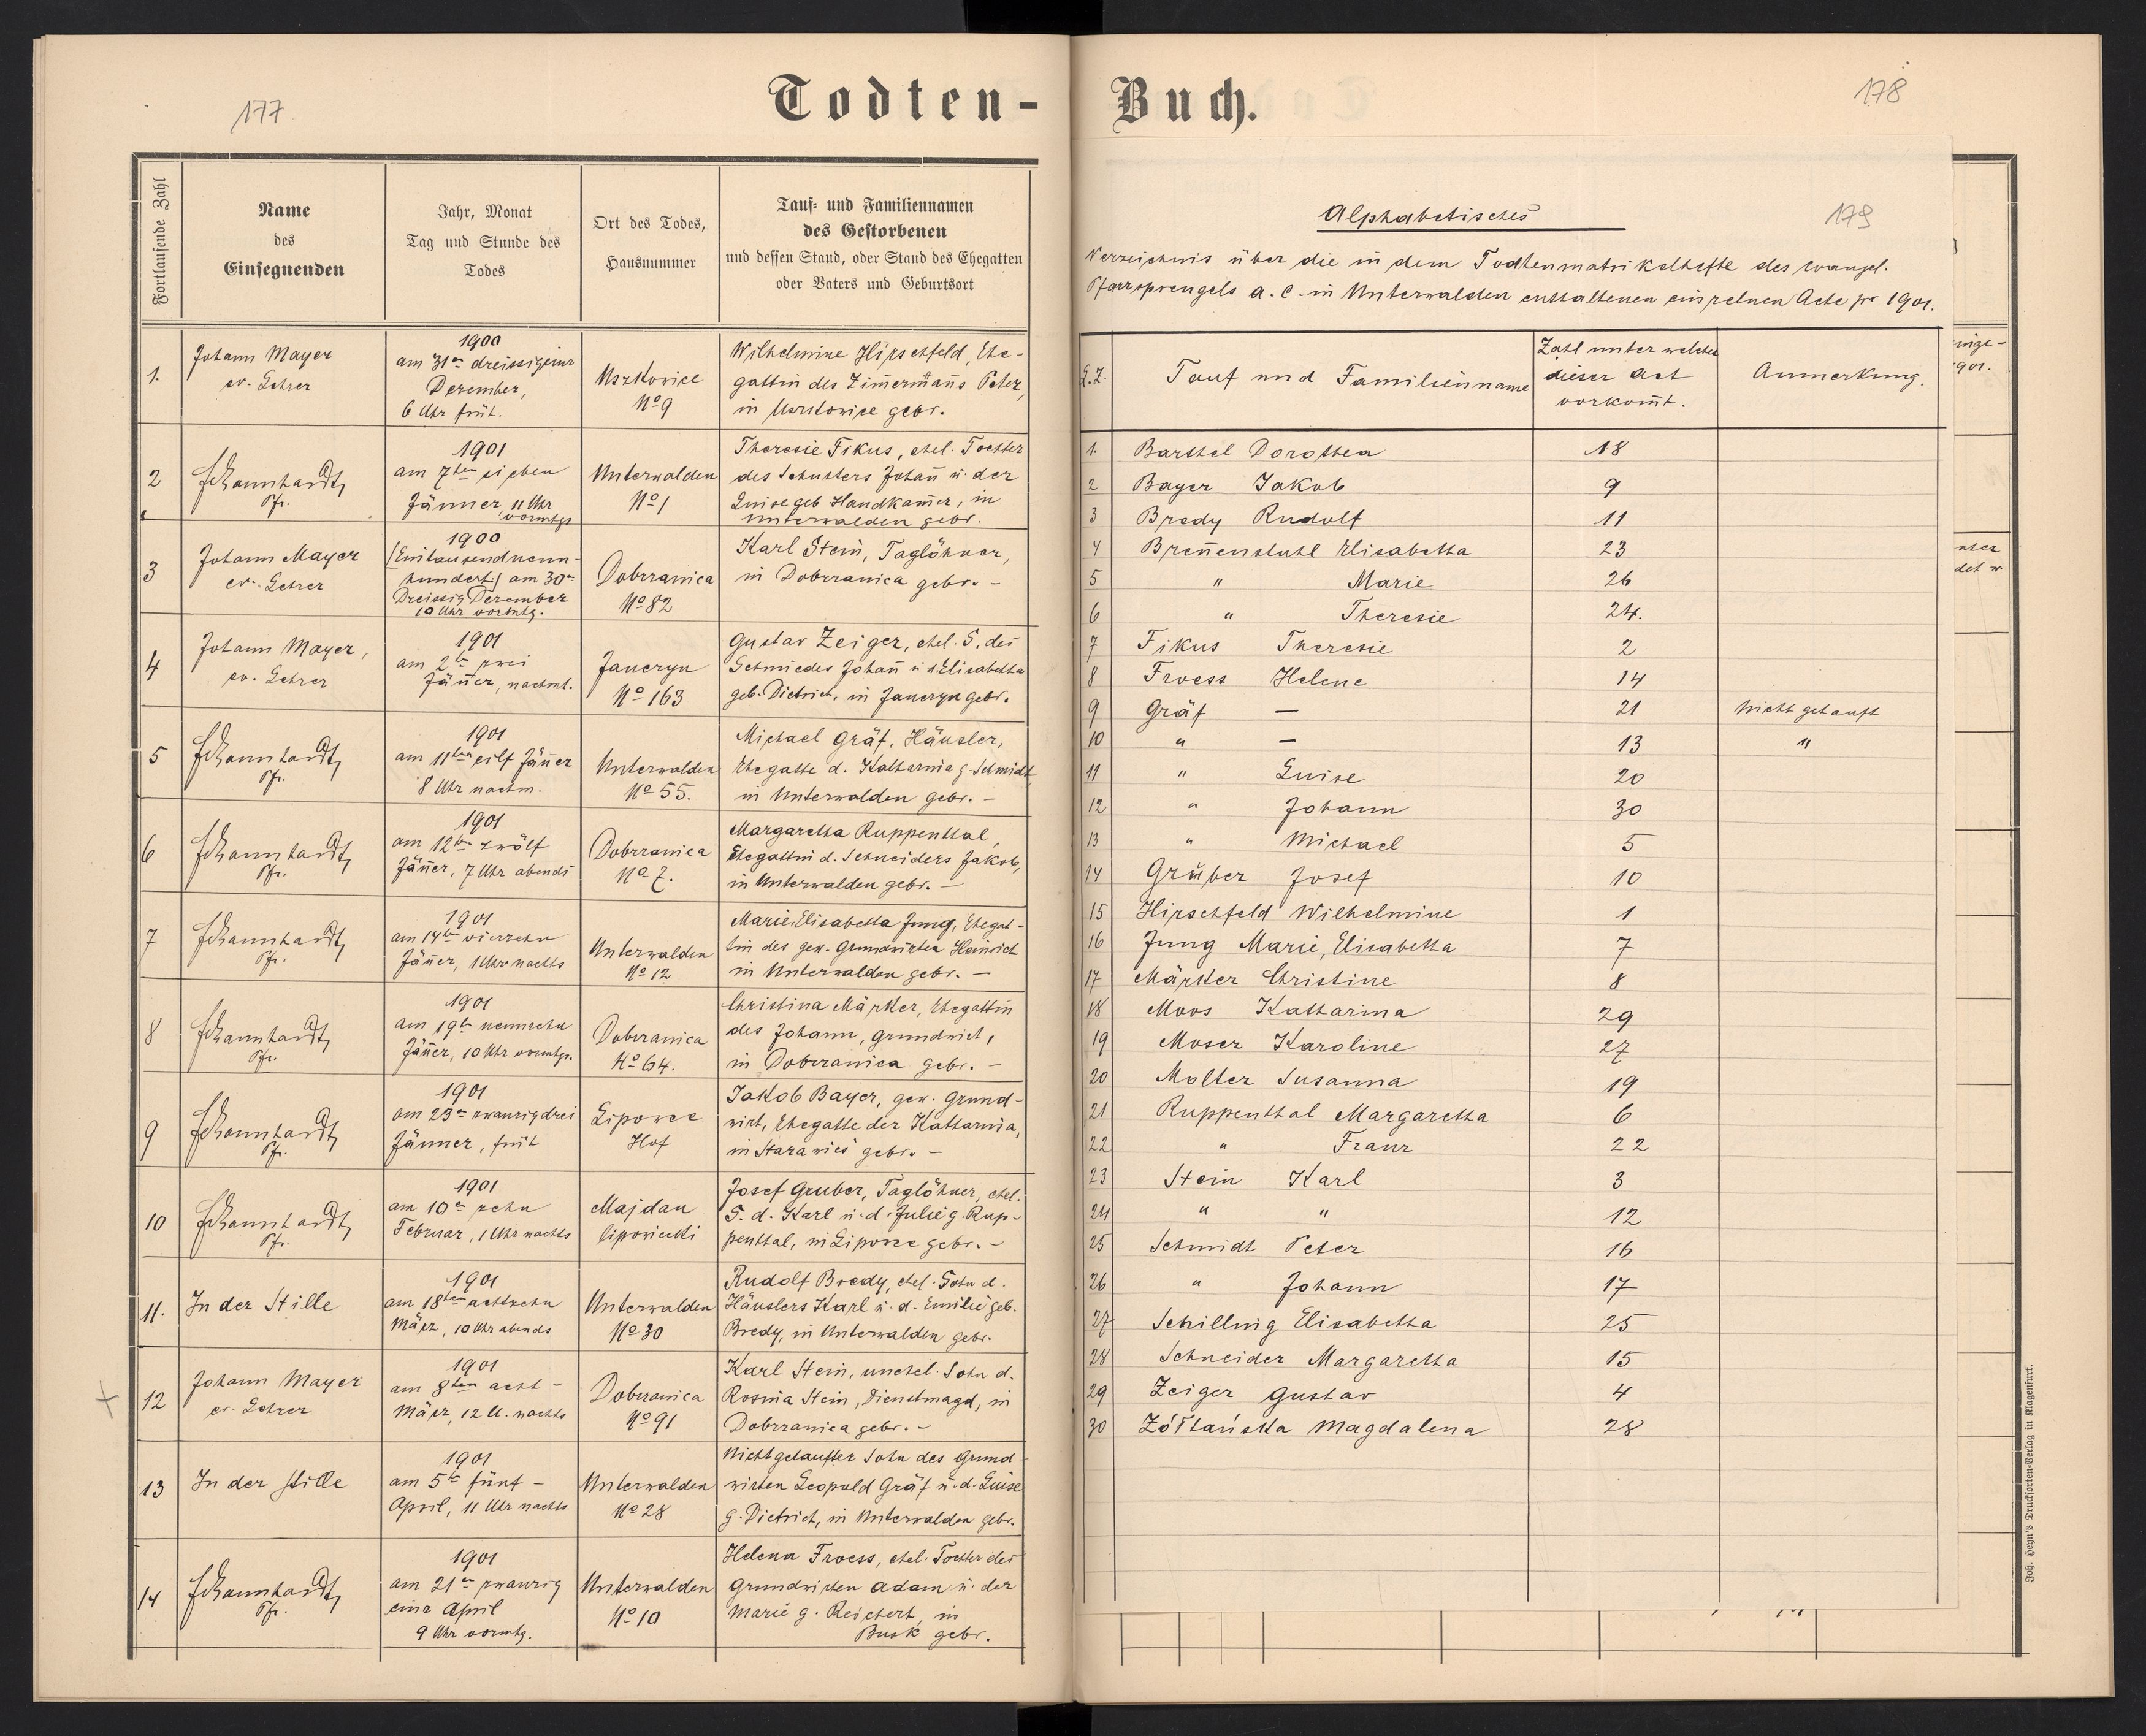 177
Todten-
Fortlaufende Zahl
Name
des
Einsegnenden
Jahr, Monat
Tag und Stunde des
Todes
Ort des Todes,
Hausnummer
Tauf- und Familiennamen
des Gestorbenen
und dessen Stand, oder Stand des Ehegatten
oder Vaters und Geburtsort
1.
Johann Mayer
ev. Lehrer
1900
am 31ten dreissigeins
Dezember,
6 Uhr früh.
Uszkowice
No 9
Wilhelmine Hirschfeld, Ehe-
gattin des Zimermañs Peter,
in Uszkowice gebr.
2
Pfr.
1901
am 7ten sieben
Jänner, 11 Uhr
vormtgs
Unterwalden
No 1
Theresie Fikus, ehel. Tochter
des Schusters Johañ u. der
Luise geb Handkamer, in
Unterwalden gebr.
3
Johann Mayer
ev. Lehrer
1900
(Eintausendneun-
hundert) am 30ten
Dreissig Dezember
10 Uhr vormtg.
Dobrzanica
No 82
Karl Stein, Taglöhner,
in Dobrzanica gebr. -
4
Johann Mayer,
ev. Lehrer
1901
am 2ten zwei
Jäñer, nachmt.
Janczyn
No 163
Gustav Zeiger, ehel. S. des
Schmiedes Johañ u d Elisabetha
geb. Dietrich, in Janczyn gebr.
5
Pfr.
1901
am 11ten eilf Jäñer
8 Uhr nachm.
Unterwalden
No 55.
Michael Gräf, Häusler,
Ehegatte d. Katharina g. Schmidt
in Unterwalden gebr. -
6
Pfr.
1901
am 12ten zwölf
Jäñer, 7 Uhr abends
Dobrzanica
No 7.
Margaretha Ruppenthal,
Ehegattin d. Schneiders Jakob,
in Unterwalden gebr. -
7
Pfr.
1901
am 14ten vierzehn
Jäñer, 1 Uhr nachts
Unterwalden
No 12
Marie, Elisabetha Jung, Ehegat-
tin des gew. Grundwirten Heinrich
in Unterwalden gebr. -
8
Pfr.
1901
am 19ten neunzehn
Jäñer, 10 Uhr vormtgs.
Dobrzanica
No 64.
Christina Märker, Ehegattin
des Johann, Grundwirt,
in Dobrzanica gebr. -
9
Pfr.
1901
am 23ten zwanzigdrei
Jänner, früh
Lipowce
Hof
Jakob Bayer, gew. Grund-
wirt, Ehegatte der Katharina,
in Starawieś gebr. -
10
Pfr.
1901
am 10ten zehn
Februar, 1 Uhr nachts
Majdan
lipowiecki
Josef Gruber, Taglöhner, ehel.
S. d. Karl u. d. Julie g. Rup-
penthal, in Lipowce gebr. -
11.
In der Stille
1901
am 18ten achtzehn
März, 10 Uhr abends
Unterwalden
No 30
Rudolf Bredy, ehel. Sohn d.
Häuslers Karl u. d. Emilie geb.
Bredy, in Unterwalden gebr.
12
Johann Mayer
ev. Lehrer
1901
am 8ten acht -
März, 12 U. nachts
Dobrzanica
No 91
Karl Stein, unehel. Sohn d.
Rosina Stein, Dienstmagd, in
Dobrzanica gebr. -
13
In der Stille
1901
am 5ten fünf -
April, 11 Uhr nachts
Unterwalden
No 28
Nichtgetaufter Sohn des Grund-
wirten Leopold Gräf u. d. Luise
g. Dietrich, in Unterwalden gebr.
14
Pfr.
1901
am 21ten zwanzig
eins April
9 Uhr vormtg.
Unterwalden
No 10
Helena Froess, ehel. Tochter des
Grundwirten Adam u. der
Marie g. Reichert, in
Busk gebr.
Buch.
178
Alphabetisches
179
Verzeichnis über die in dem Todtenmatrikelhefte des evangel.
Pfarrsprengels a. C. in Unterwalden enthaltenen einzelnen Acte pr 1901.
L.Z.
Tauf und Familienname
Zahl unter welcher
dieser Act
vorkomt.
Anmerkung.
1. Barthel Dorothea 18
2 Bayer Jakob 9
3 Bredy Rudolf 11
4 Breñenstuhl Elisabetha 23
5 " Marie 26
6 " Theresie 24.
7 Fikus Theresie 2
8 Froess Helene 14
9 Gräf — 21 Nicht getauft
10 " — 13 "
11 " Luise 20
12 " Johann 30
13 " Michael 5
14 Gruber Josef 10
15 Hirschfeld Wilhelmine 1
16 Jung Marie, Elisabetha 7
17 Märker Christine 8
18 Moos Katharina 29
19 Moser Karoline 27
20 Molter Susanna 19
21 Ruppenthal Margaretha 6
22 " Franz 22
23 Stein Karl 3
24 " " 12
25 Schmidt Peter 16
26 " Johann 17
27 Schilling Elisabetha 25
28 Schneider Margaretha 15
29 Zeiger Gustav 4
30 Żółtańska Magdalena 28
Joh. Heyn's Drucksorten-Verlag in Klagenfurt.